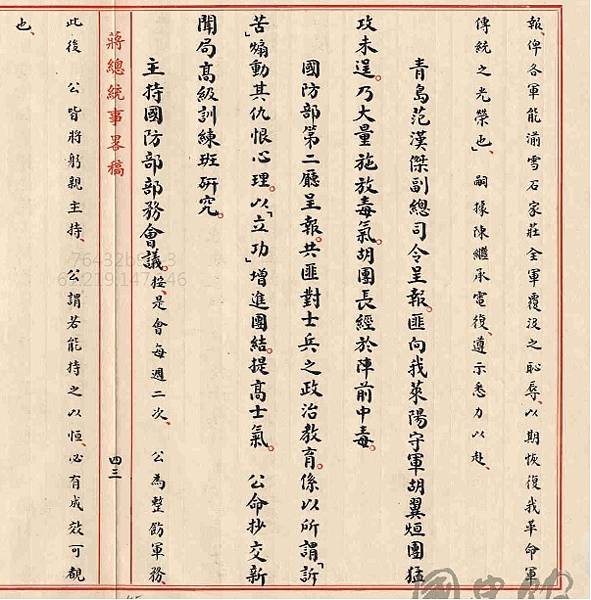 報、俾各軍能湔雪石家莊全軍覆沒之恥辱、以期恢復我革命軍
傳統之光榮也」嗣據陳繼承電復、遵示悉力以赴、
青島范漢傑副總司令呈報。匪向我萊陽守軍胡翼烜團猛
攻未逞。乃大量施放毒氣。胡團長經於陣前中毒。
國防部第二廳呈報。共匪對士兵之政治教育。係以所謂「訴
苦」煽動其仇恨心理。以「立功」增進團結。提高士氣。公命抄交新
聞局高級訓練班研究。
主持國防部部務會議。按、是會每週二次、公為整飭軍務
蔣總統事略稿
四三
此後 公皆將躬親主持、公謂若能持之以恒、必有成效可覩
也、